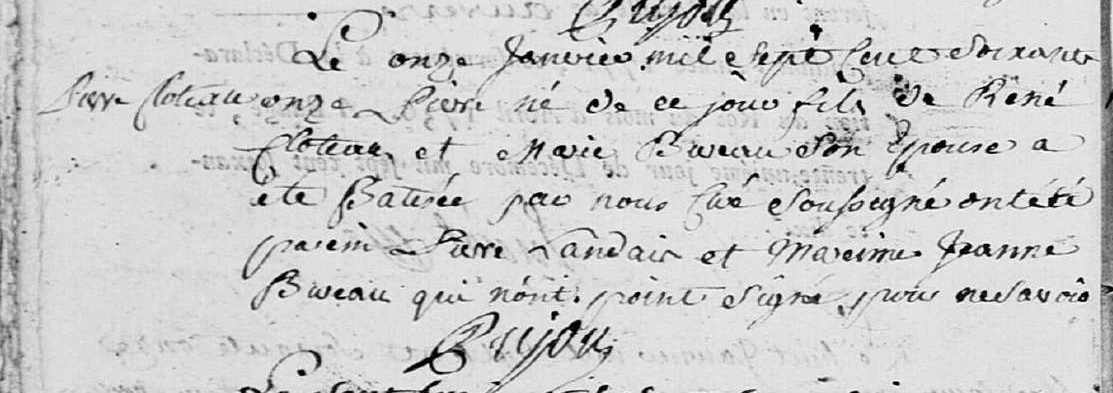 Bujou
Le onze Janvier mil sept cent soixante
Pierre Cloteau onze Pierre né de ce jour fils de René
Cloteau et Marie Bureau son Epouse a
été Batisée par nous Curé soussigné ont été
parein Pierre Landais et Mareine Jeanne
Bureau qui n'ont point signé pour ne savoir
Bujou